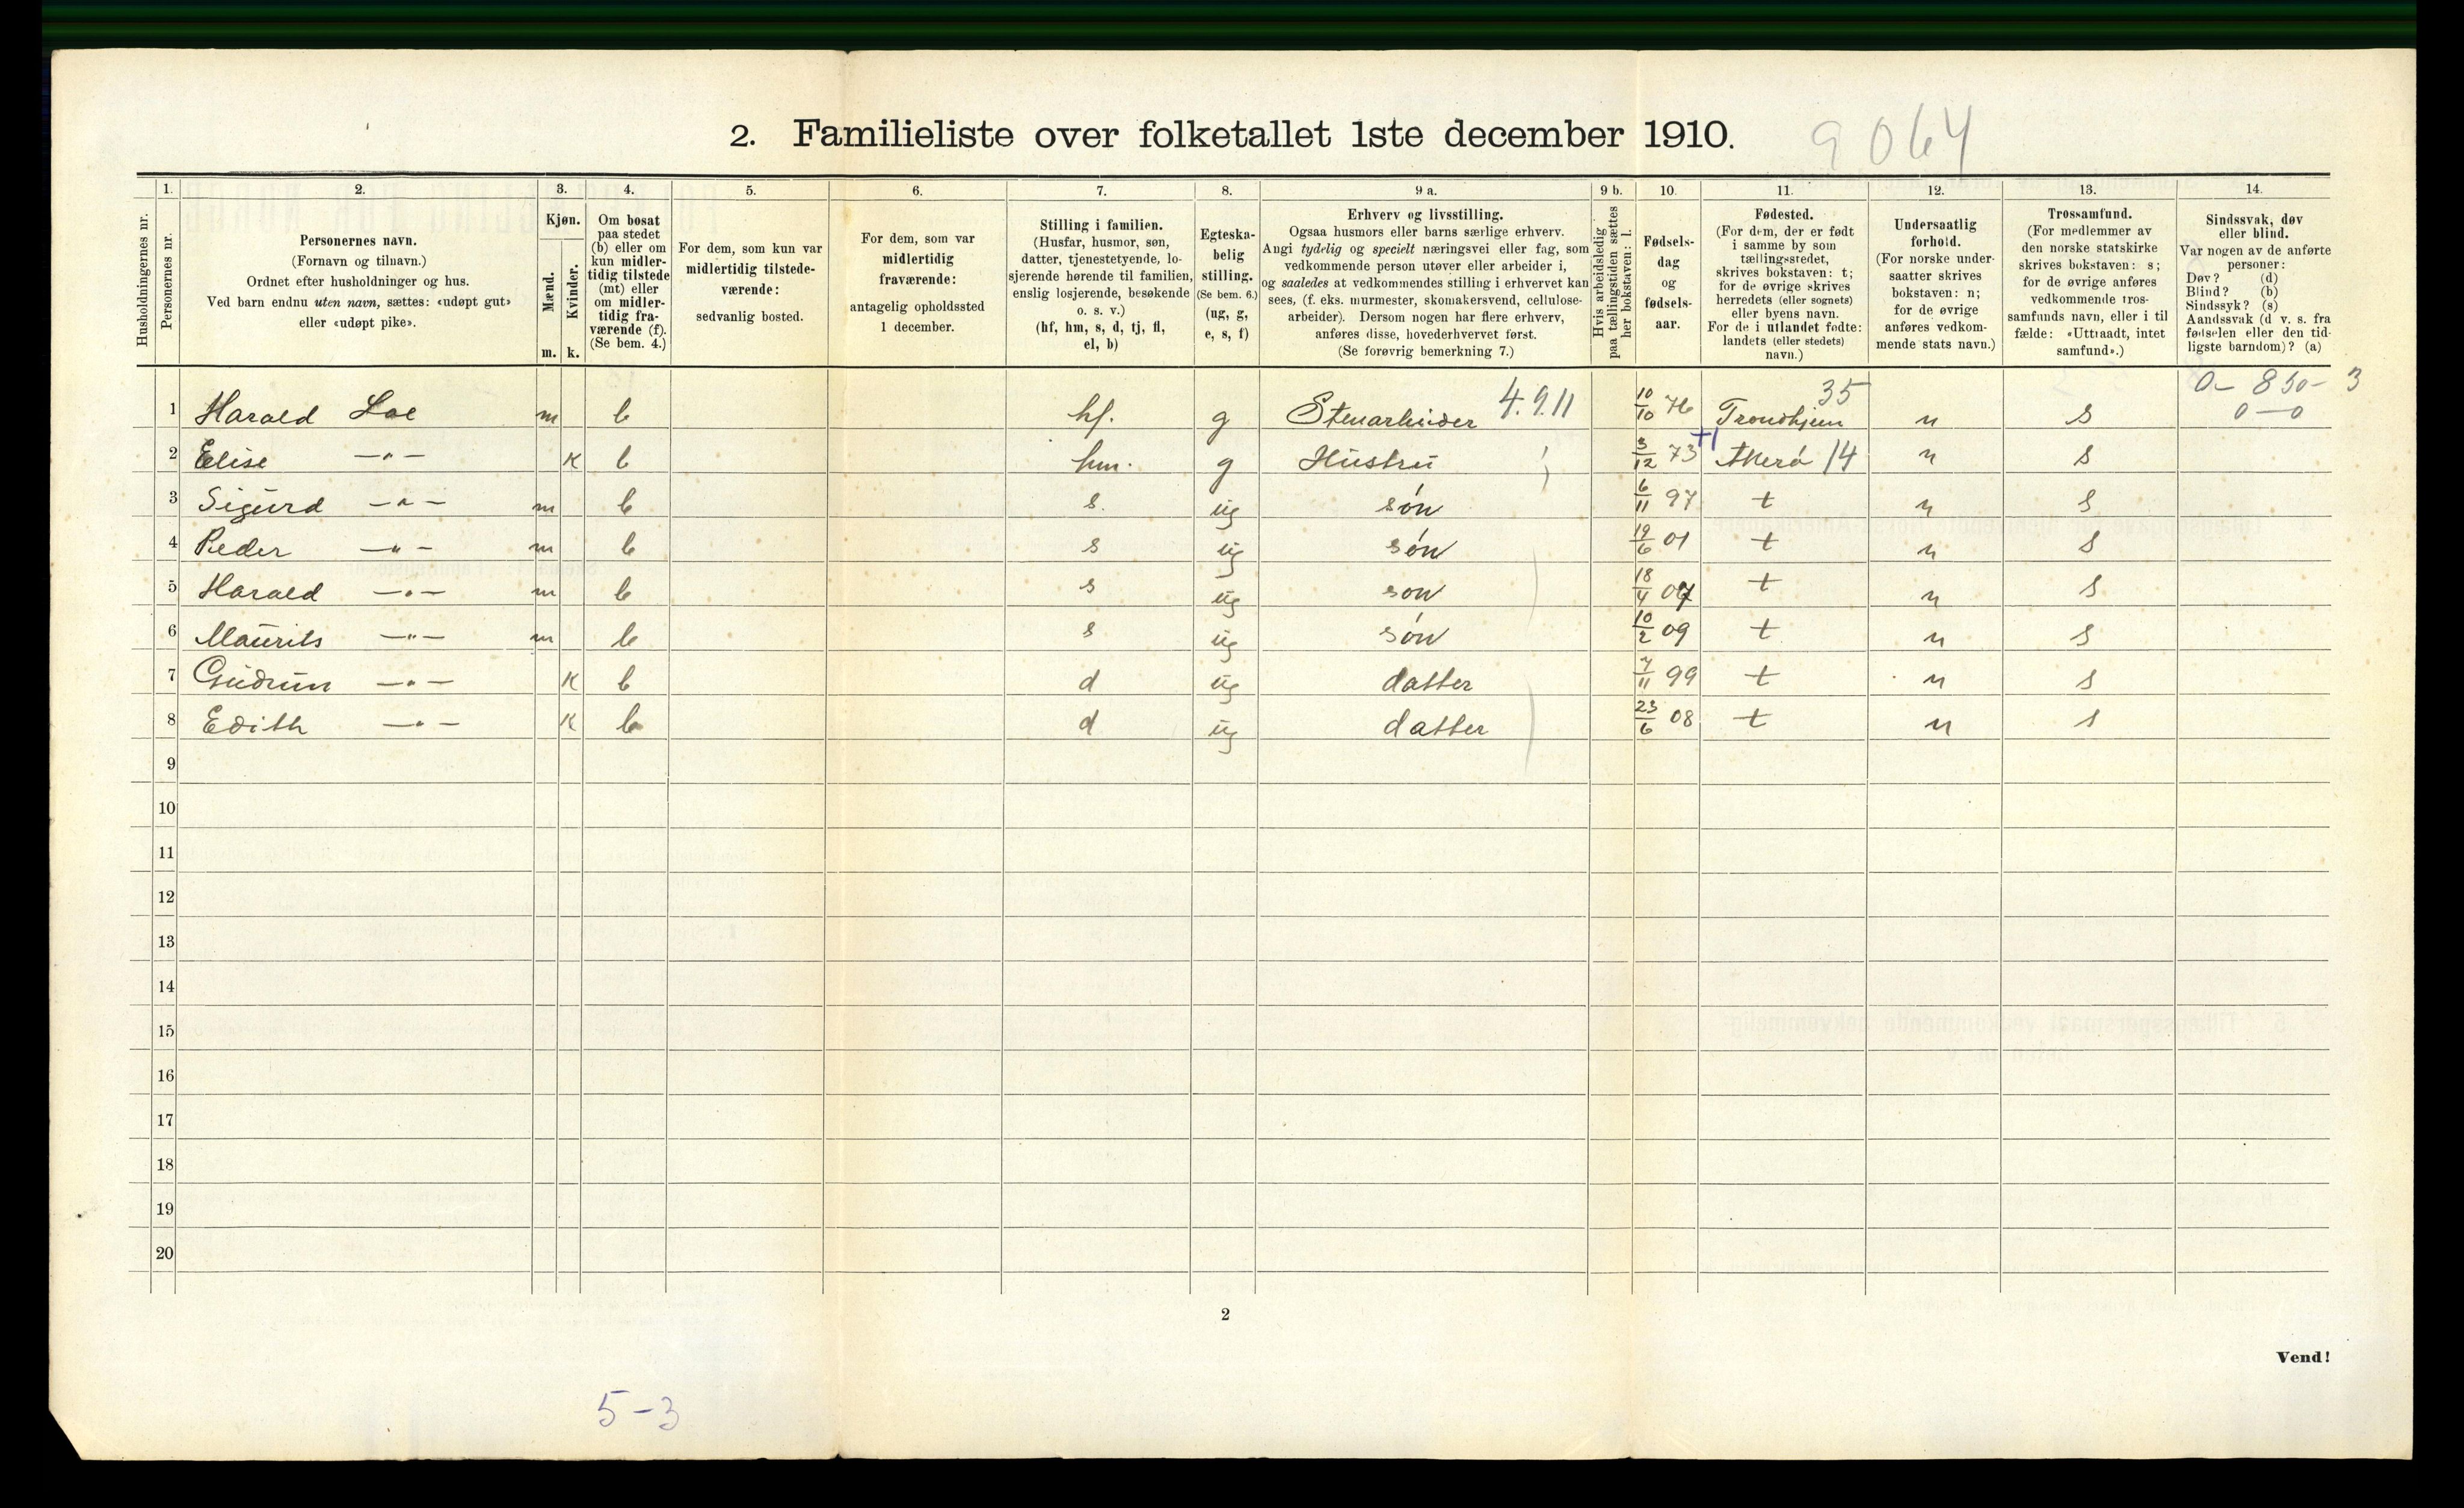 2. Familieliste over folketallet 1ste december 1910.
9064
1.
2.
3.
4.
5.
6.
7.
8.
9 a.
9 b.
10.
11.
12.
13.
14.
Husholdningernes nr.
Personernes nr.
Personernes navn.
(Fornavn og tilnavn.)
Ordnet efter husholdninger og hus.
Ved barn endnu uten navn, sættes: «udøpt gut»
eller «udøpt pike».
Kjøn.
Mænd.
Kvinder.
m. k.
Om bosat
paa stedet
(b) eller om
kun midler-
tidig tilstede
(mt) eller
om midler-
tidig fra-
værende (f).
(Se bem. 4.)
For dem, som kun var
midlertidig tilstede-
værende:
sedvanlig bosted.
For dem, som var
midlertidig
fraværende:
antagelig opholdssted
1 december.
Stilling i familien.
(Husfar, husmor, søn,
datter, tjenestetyende, lo-
sjerende hørende til familien,
enslig losjerende, besøkende
o. s. v.)
(hf, hm, s, d, tj, fl,
el, b)
Egteska-
belig
stilling.
(Se bem. 6.)
(ug, g,
e, s, f)
Erhverv og livsstilling.
Ogsaa husmors eller barns særlige erhverv.
Angi tydelig og specielt næringsvei eller fag, som
vedkommende person utøver eller arbeider i,
og saaledes at vedkommendes stilling i erhvervet kan
sees, (f. eks. murmester, skomakersvend, cellulose-
arbeider). Dersom nogen har flere erhverv,
anføres disse, hovederhvervet først.
(Se forøvrig bemerkning 7.)
Hvis arbeidsledig
paa tællingstiden sættes
her bokstaven: l.
Fødsels-
dag
og
fødsels-
aar.
Fødested.
(For dem, der er født
i samme by som
tællingsstedet,
skrives bokstaven: t;
for de øvrige skrives
herredets (eller sognets)
eller byens navn.
For de i utlandet fødte:
landets (eller stedets)
navn.)
Undersaatlig
forhold.
(For norske under-
saatter skrives
bokstaven: n;
for de øvrige
anføres vedkom-
mende stats navn.)
Trossamfund.
(For medlemmer av
den norske statskirke
skrives bokstaven: s;
for de øvrige anføres
vedkommende tros-
samfunds navn, eller i til
fælde: «Uttraadt, intet
samfund».)
Sindssvak, døv
eller blind.
Var nogen av de anførte
personer:
Døv? (d)
Blind? (b)
Sindssyk? (s)
Aandssvak (d v. s. fra
fødselen eller den tid-
ligste barndom)? (a)
35 0- 850- 3
1 Harald Loe m b hf. g Stenarbeider 4.9.11 10/10 76 Trondhjem n s 0-0
2 Elise -"- k b hm. g Hustru 3/12 73 +1 Akerö 14 n s
3 Sigurd -"- m b s. ug søn 6/11 97 t n s
4 Peder -"- m b s ug søn 19/6 01 t n s
5 Harald -"- m b s ug søn 18/4 07 t n s
6 Maurits -"- m b s ug søn 10/2 09 t n s
7 Gudrun -"- k b d ug datter 7/11 99 t n s
8 Edith -"- k b d ug datter 23/6 08 t n s
9
10
11
12
13
14
15
16
17
18
19
20
2
Vend!
5-3